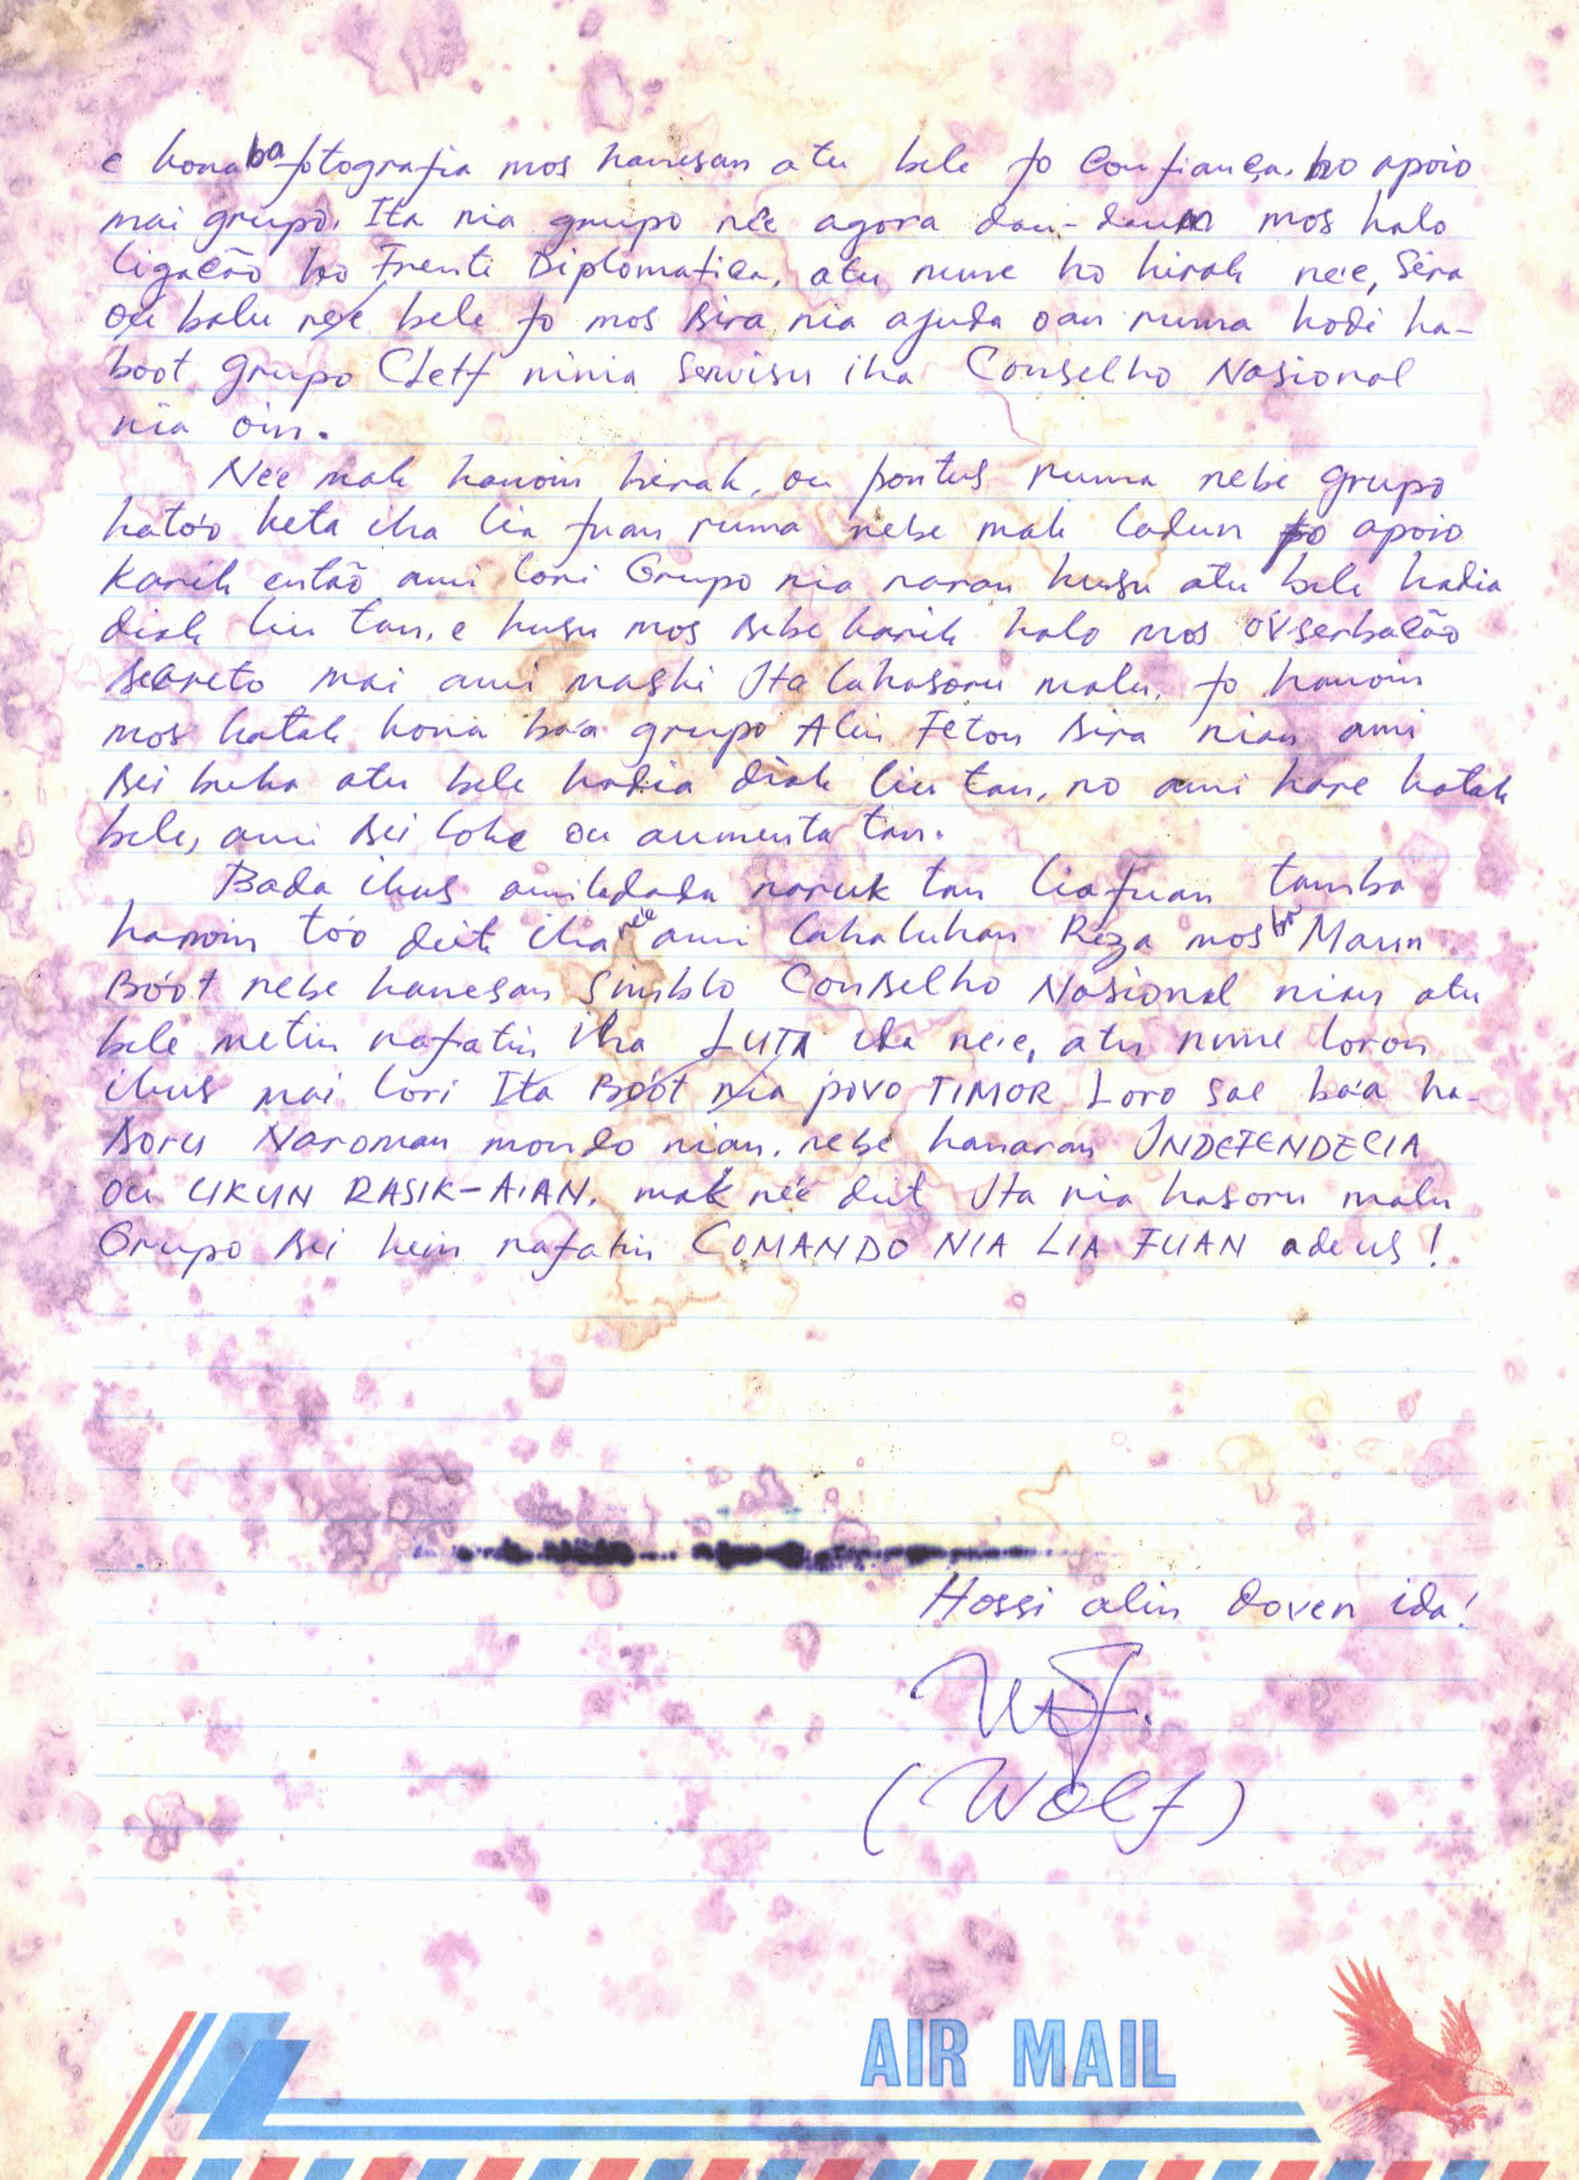 e kona ba fotografia mos hanesan atu bele fo confiança. ho apoio
mai grupo. Ita nia grupo ne'e agora dau-daun mos halo
ligacão ho Frente Diplomatica, atu nune ho hirak ne'e, Sira
ou balu ne'e bele fo mos sira nia ajuda oan ruma hodi ha-
boot grupo Cleff ninia Servisu iha Conselho Nasional
nia oin.
Ne'e mak hanoin hirak, ou pontus ruma nebe grupo
hato'o keta iha lia fuan ruma nebe mak ladun fo apoio
Karik então ami lori Grupo nia naran husu atu bele hadia
diak liu tan, e husu mos sebe karik halo mos óvserbacão
secreto mai ami maski Ita lahasoru malu, fo hanoin
mos katak kona ba'a grupo Alin Feton sira nian ami
sei buka atu bele hadia diak liu tan, no ami hare katak
bele, ami sei loke ou aumenta tan.
Bada ikus ami ladada naruk tan liafuan tamba
hanoin to'o deit iha ne'e ami lahaluhan Reza mos ba Maun
Bo'ot nebe hanesan Simblo Conselho Nasional nian atu
bele metin nafatin iha LUTA ida ne'e, atu nune loron
ikus mai lori Ita Bo'ot nia povo TIMOR Loro Sae ba'a ha-
soru Naroman mondo nian. nebe hanaran INDEFENDECIA
ou UKUN RASIK-A'AN. mak ne'e deit Ita nia hasoru malu
Grupo sei hein nafatin COMANDO NIA LIA FUAN adeus!
Hossi alin doven ida!
(Wolf)
AIR MAIL